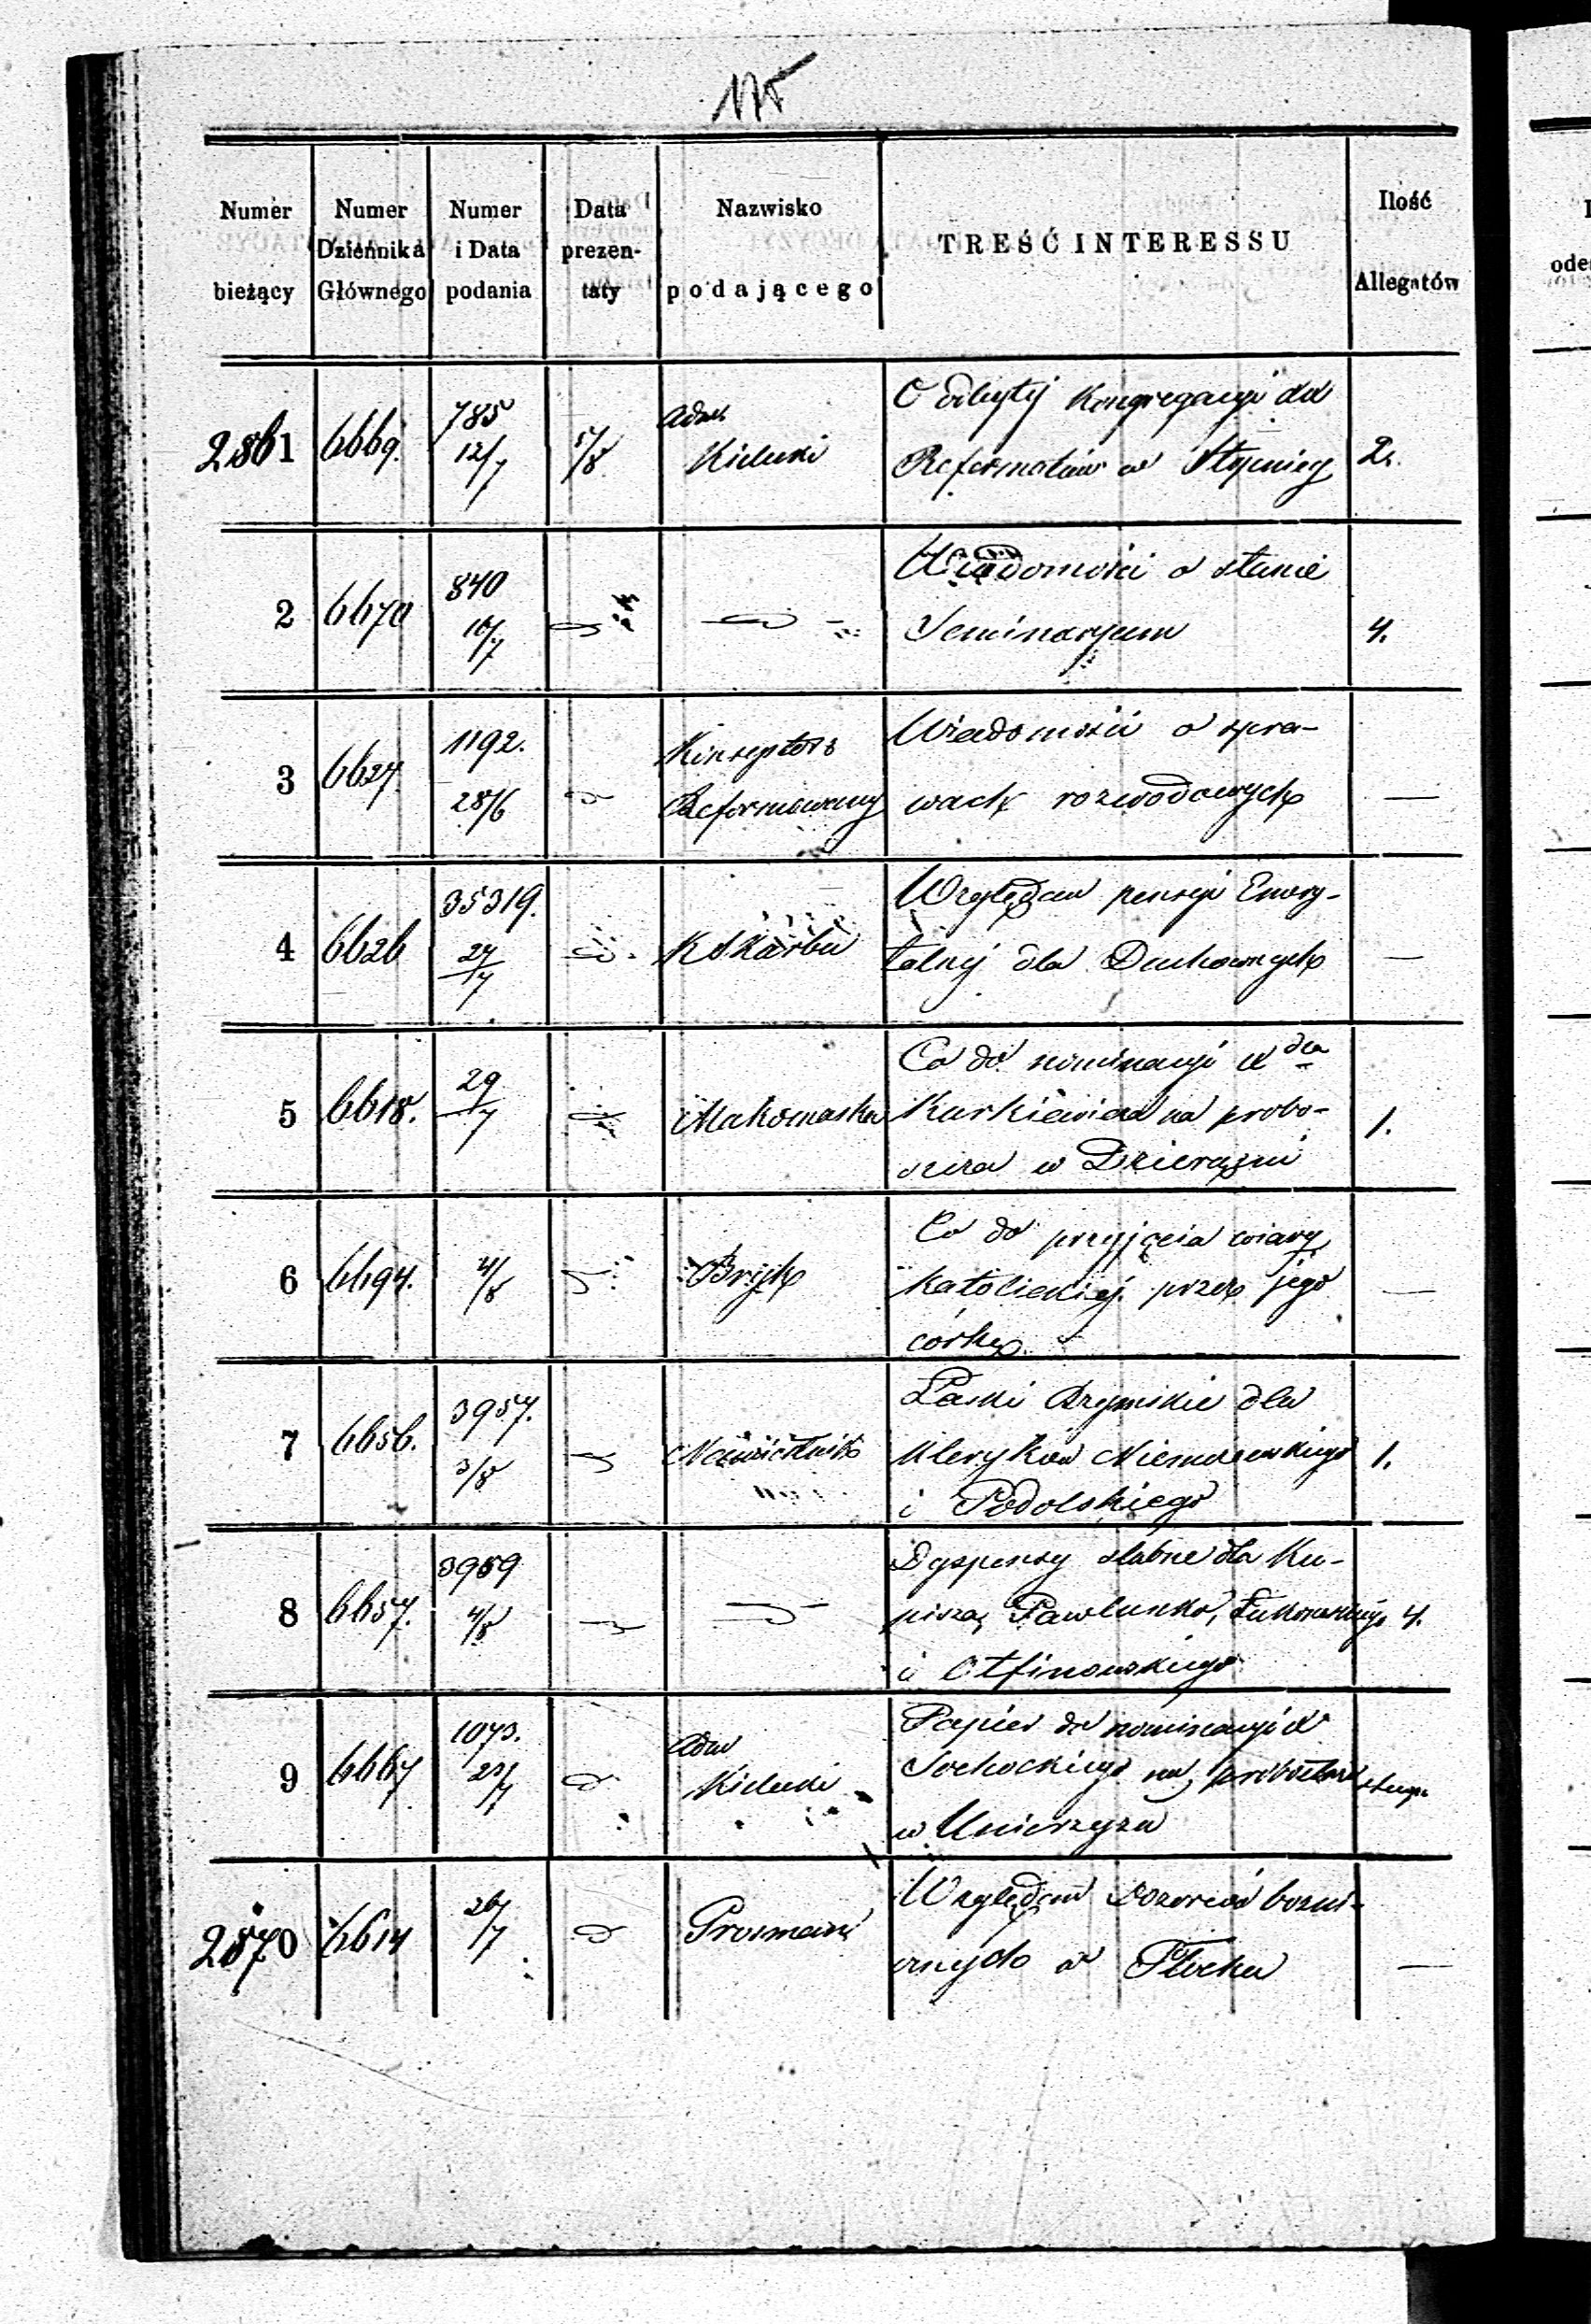 175
Numer bieżący
Numer Dziennika Głównego
Numer i Data podania
Data prezentaty
Nazwisko podającego
TREŚĆ INTERESSU
Ilość Allegatów
2861 6669. 785 12/7 5/8 Adm Kielecki
O odbytej Kongregacyi XX
Reformatów w 2.
2 6670 840 10/7
Wiadomości o stanie
Seminaryum 4.
3 6627. 1192. 28/6 Konsystorz Reformowany
Wiadomości o spra-
wach rozwodowych —
4 6626 35319. 27/7 K Skarbu
Względem pensyi Emery-
talnej dla Duchownych —
5 6618. 29/7
Co do nominacyi X
Kurkiewicza na probo-
szcza w Dzierążni 1.
6 6694. 4/8
Co do przyjęcia wiary
katolickiej przez jego
córkę —
7 6656. 3957. 3/8 Namiestnik
Łaski Rzymskie dla
Kleryków
i Podolskiego 1.
8 6657. 3959 4/8
Dyspensy ślubne dla Ku-
pisza, Pawlunko, 4.
i Otfinowskiego
9 6667 1073. 23/7 Adm Kielecki
Papier do nominacyi X
Sochockiego na probostwo
w Unierzyżu
2870 6614 26/7
Względem Dozorców bożni-
cznych w Płocku —